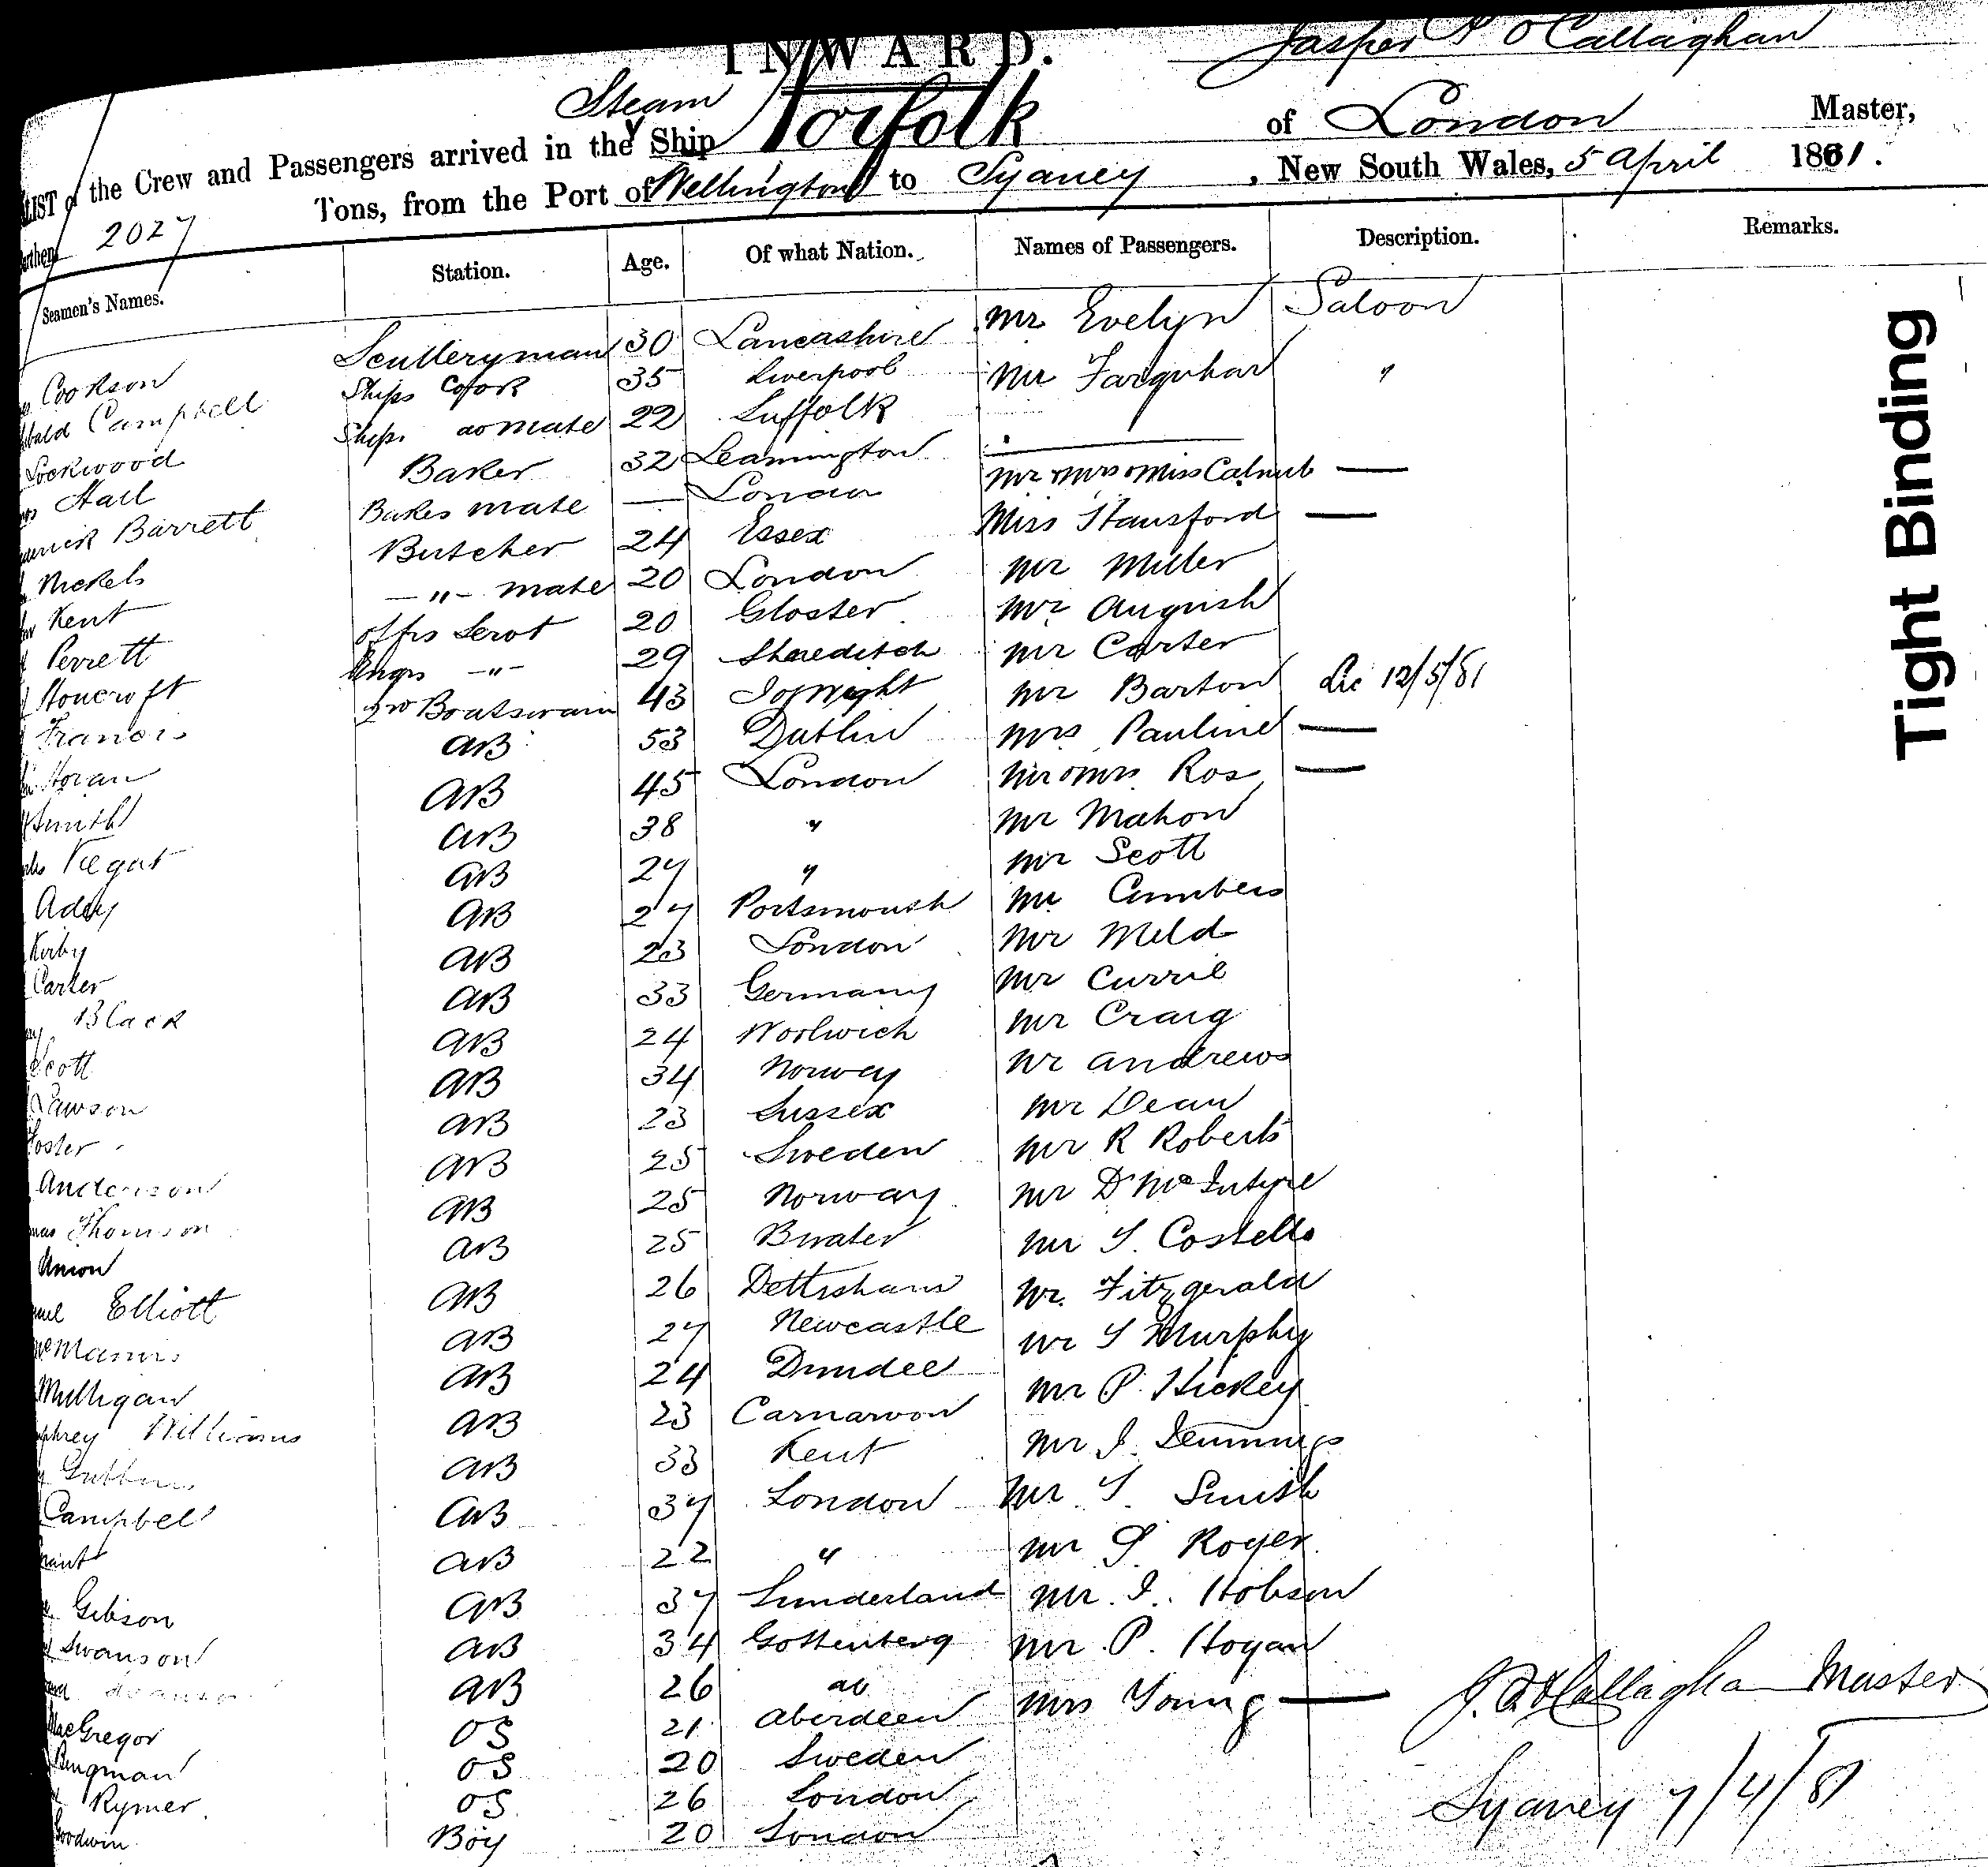 INWARD.
Jasper O'Callaghan
Steam
LIST of the Crew and Passengers arrived in the Ship Norfolk of London Master,
2027 Tons, from the Port of Wellington to Sydney, New South Wales, 5 April 1881.
Seamen's Names. Station. Age. Of what Nation. Names of Passengers. Description. Remarks.
Cookson Sculleryman 30 Lancashire Mr Evelyn Saloon
Campbell Ships Cook 35 Liverpool Mr Farquhar "
Lockwood Ships do mate 22 Suffolk
Hall Baker 32 Leamington Mr Mrs & Miss
Barrett Bakes mate — London Miss Stansford —
Nickels Butcher 24 Essex Mr Miller
Kent —"— mate 20 London Mr
Perrett offrs Servt 20 Gloster Mr Carter
Engrs —"— 29 Shoreditch Mr Barton 12/5/81
Francis Boatswain 43 I of Wight Mrs Pauline —
Horan AB 53 Dublin Mr & Mrs Ros —
Smith AB 45 London Mr Mahon
AB 38 " Mr Scott
Adey AB 27 " Mr Cumbers
Kirby AB 27 Portsmouth Mr Meld
Carter AB 23 London Mr Currie
Black AB 33 Germany Mr Craig
Scott AB 24 Woolwich Mr Andrews
Lawson AB 34 Norway Mr Dean
Foster AB 23 Sussex Mr R Roberts
Anderson AB 25 Sweden Mr D McIntyre
Thomson AB 25 Norway Mr T. Costello
Union AB 25 Mr. Fitzgerald
Elliott AB 26 Mr T Murphy
AB 27 Newcastle Mr P. Hickey
Mulligan AB 24 Dundee Mr J.
Williams AB 23 Carnarvon Mr T. Smith
AB 33 Kent Mr Royer
Campbell AB 37 London Mr. J. Hobson
AB 22 " Mr P. Hogan
Gibson AB 37 Sunderland Mrs Young —
Swanson AB 34 Gottenberg
AB 26 do
MacGregor OS 21 Aberdeen
Bengman OS 20 Sweden
Rymer OS 26 London
Goodwin Boy 20 London
J. O'Callaghan Master
Sydney 7/4/81
Tight Binding